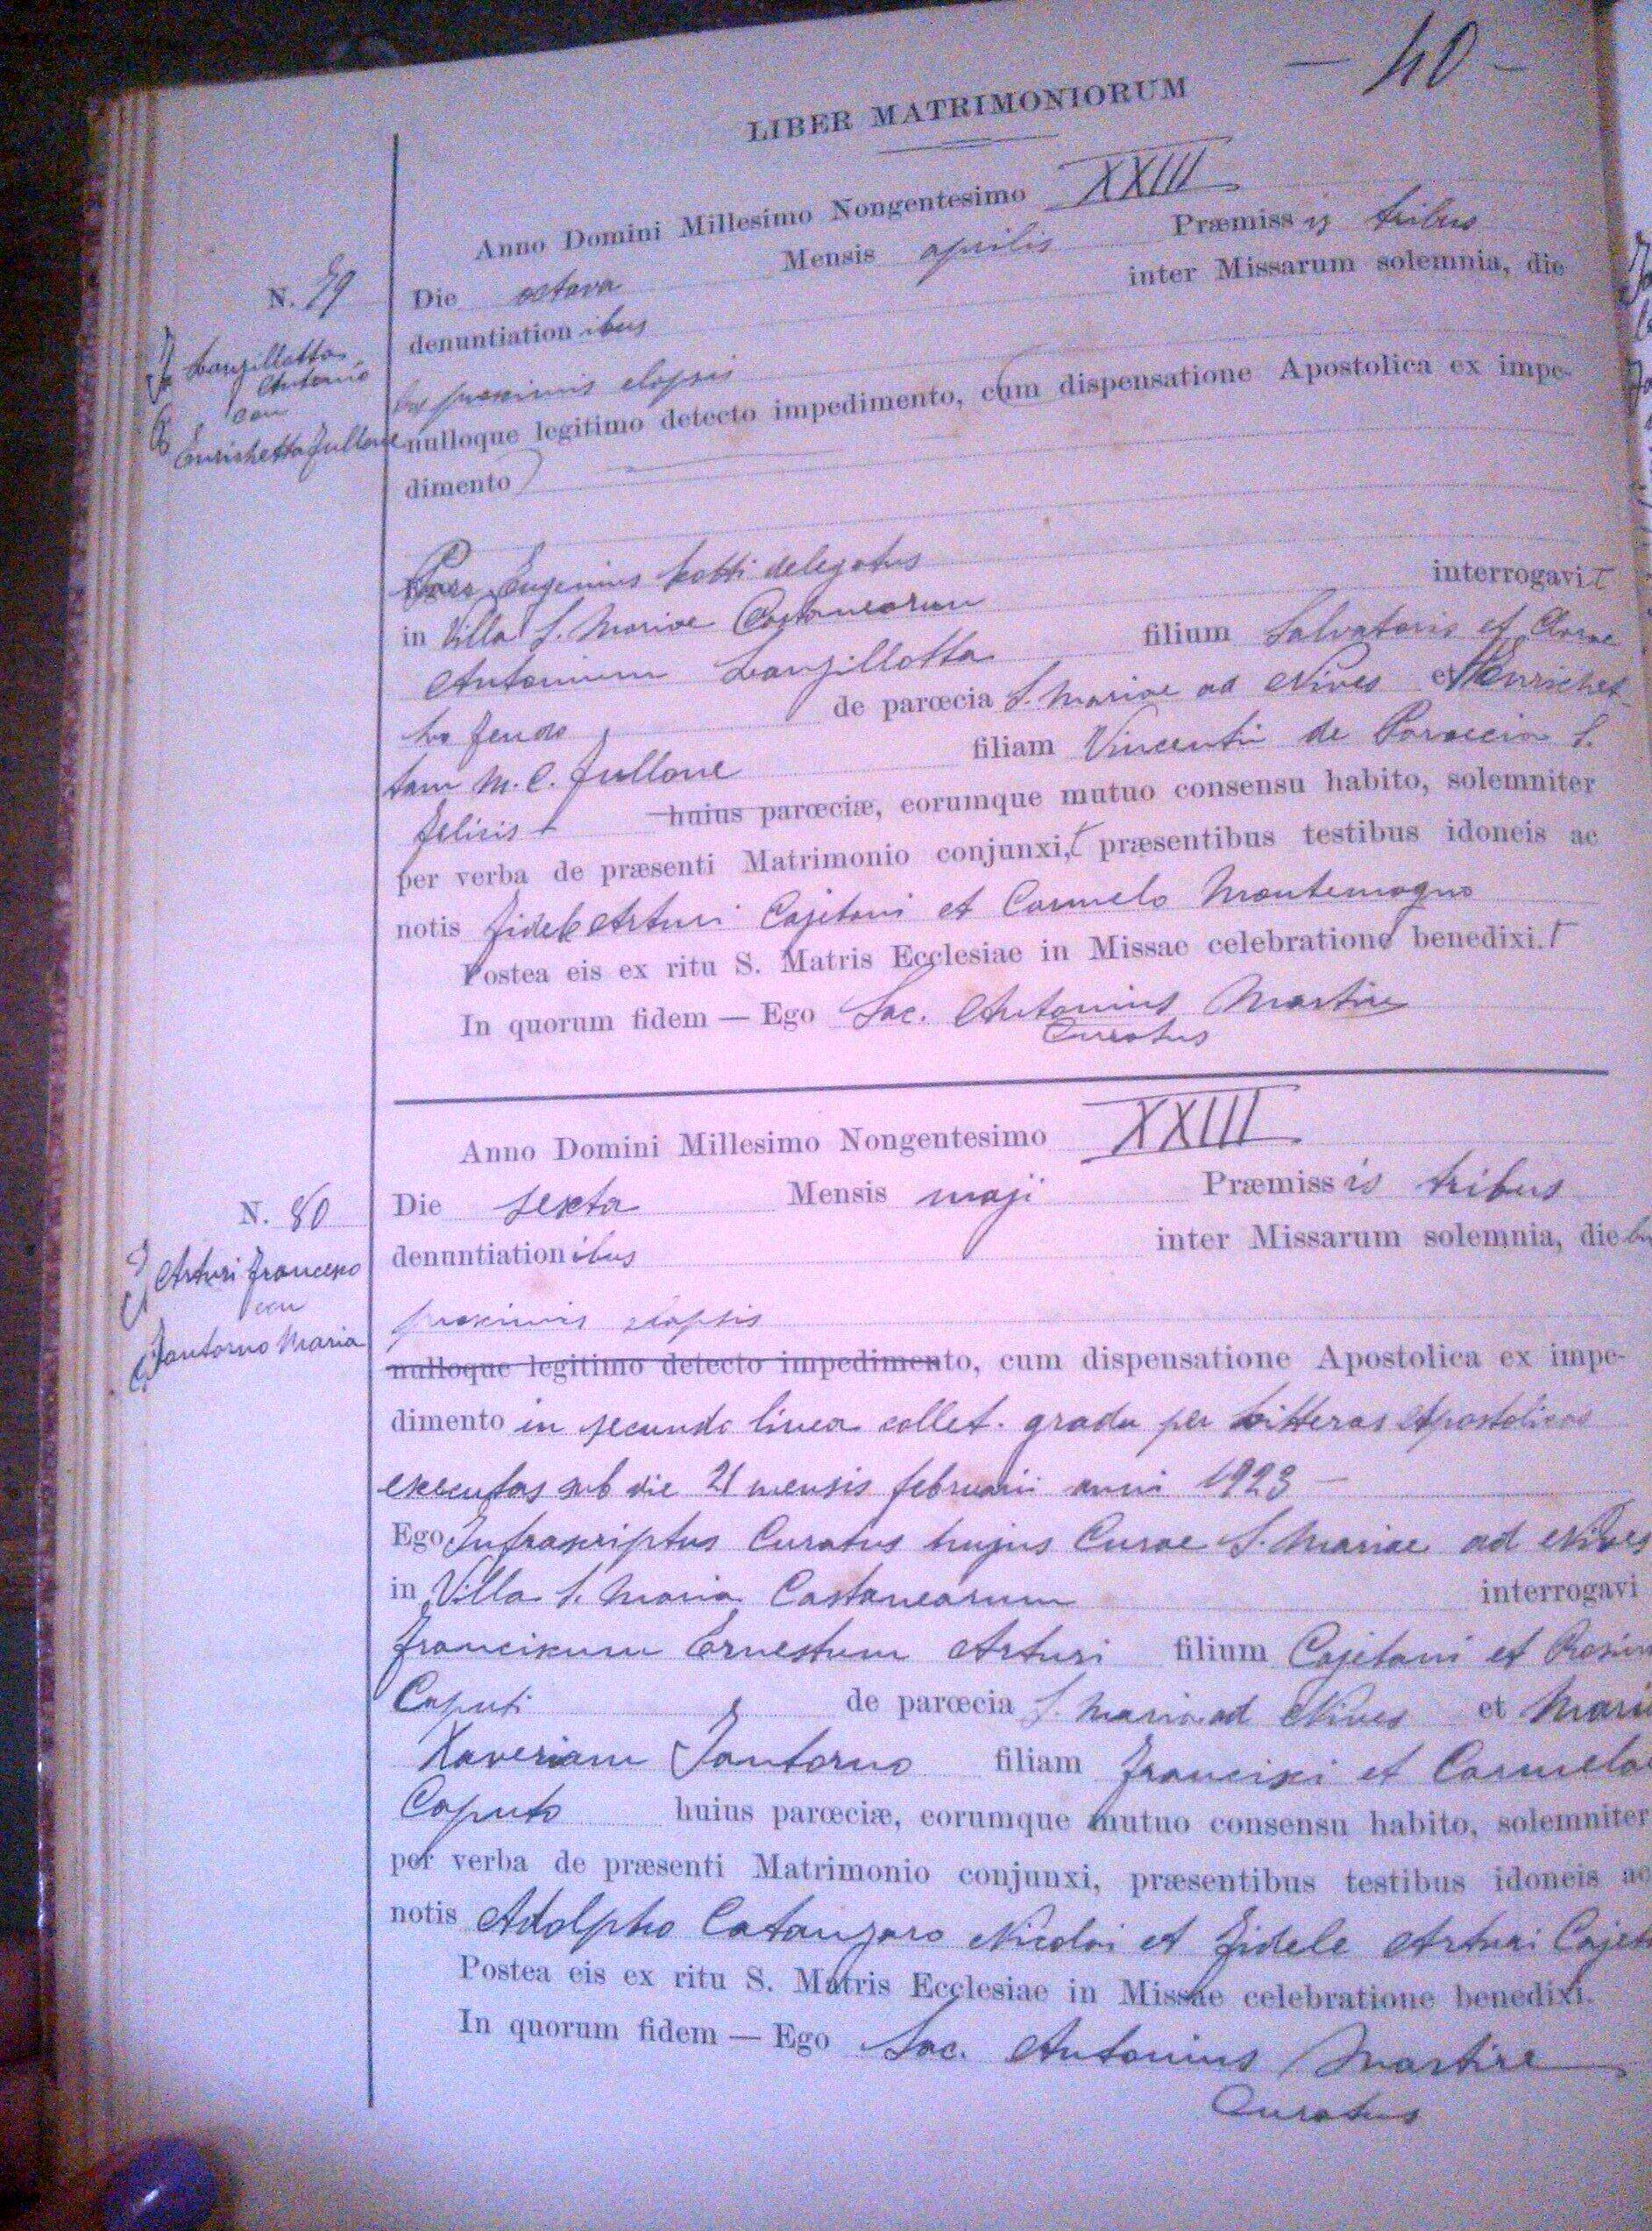 - 40 -
LIBER MATRIMONIORUM
Anno Domini Millesimo Nongentesimo XXIII
N. 79
Die octava Mensis aprilis Præmissis tribus
denuntiationibus inter Missarum solemnia, die
Lanzillotta
Antonio
con
Enrichetta Fullone
bus proximis elapsis
nulloque legitimo detecto impedimento, cum dispensatione Apostolica ex impe-
dimento
Eugenius delegatus
in Villa S. Mariae Castanearum interrogavit
Antonium Lanzillotta filium Salvatoris et
de parœcia S. Mariae ad Nives et Enrichet
tam M. C. Fullone filiam Vincentii de Paroecia S.
Felicis huius parœciæ, eorumque mutuo consensu habito, solemniter
per verba de præsenti Matrimonio conjunxit, præsentibus testibus idoneis ac
notis Fidele Arturi Cajetani et Carmelo Montemagno
Postea eis ex ritu S. Matris Ecclesiae in Missae celebratione benedixit
In quorum fidem — Ego Sac. Antonius Martire
Curatus
Anno Domini Millesimo Nongentesimo XXIII
N. 80
Die sexta Mensis maji Præmissis tribus
denuntiationibus inter Missarum solemnia, diebus
Arturi Francesco
con
Santorno Maria
proximis elapsis
nulloque legitimo detecto impedimento, cum dispensatione Apostolica ex impe-
dimento in secundo linea collat. gradu per Litteras Apostolicas
executas sub die 21 mensis februarii anni 1923 -
Ego Infrascriptus Curatus hujus Curae S. Mariae ad Nives
in Villa S. Maria Castanearum interrogavi
Franciscum Ernestum Arturi filium Cajetani et Rosin
Caputi de parœcia S. Maria ad Nives et Mari
Xaveriam Santorno filiam Francisci et Carmelae
Caputo huius parœciæ, eorumque mutuo consensu habito, solemniter
per verba de præsenti Matrimonio conjunxi, præsentibus testibus idoneis ac
notis Adolpho Catanzaro Nicolai et Fidele Arturi Cajet
Postea eis ex ritu S. Matris Ecclesiae in Missae celebratione benedixi.
In quorum fidem — Ego Sac. Antonius Martire
Curatus